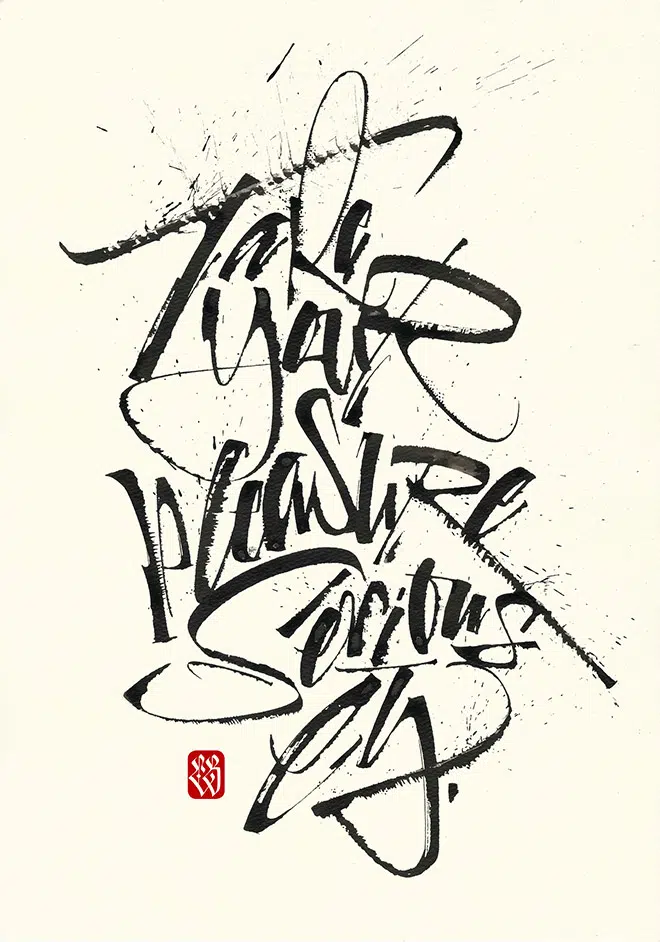 Take
your
pleasure
Serious
ly.